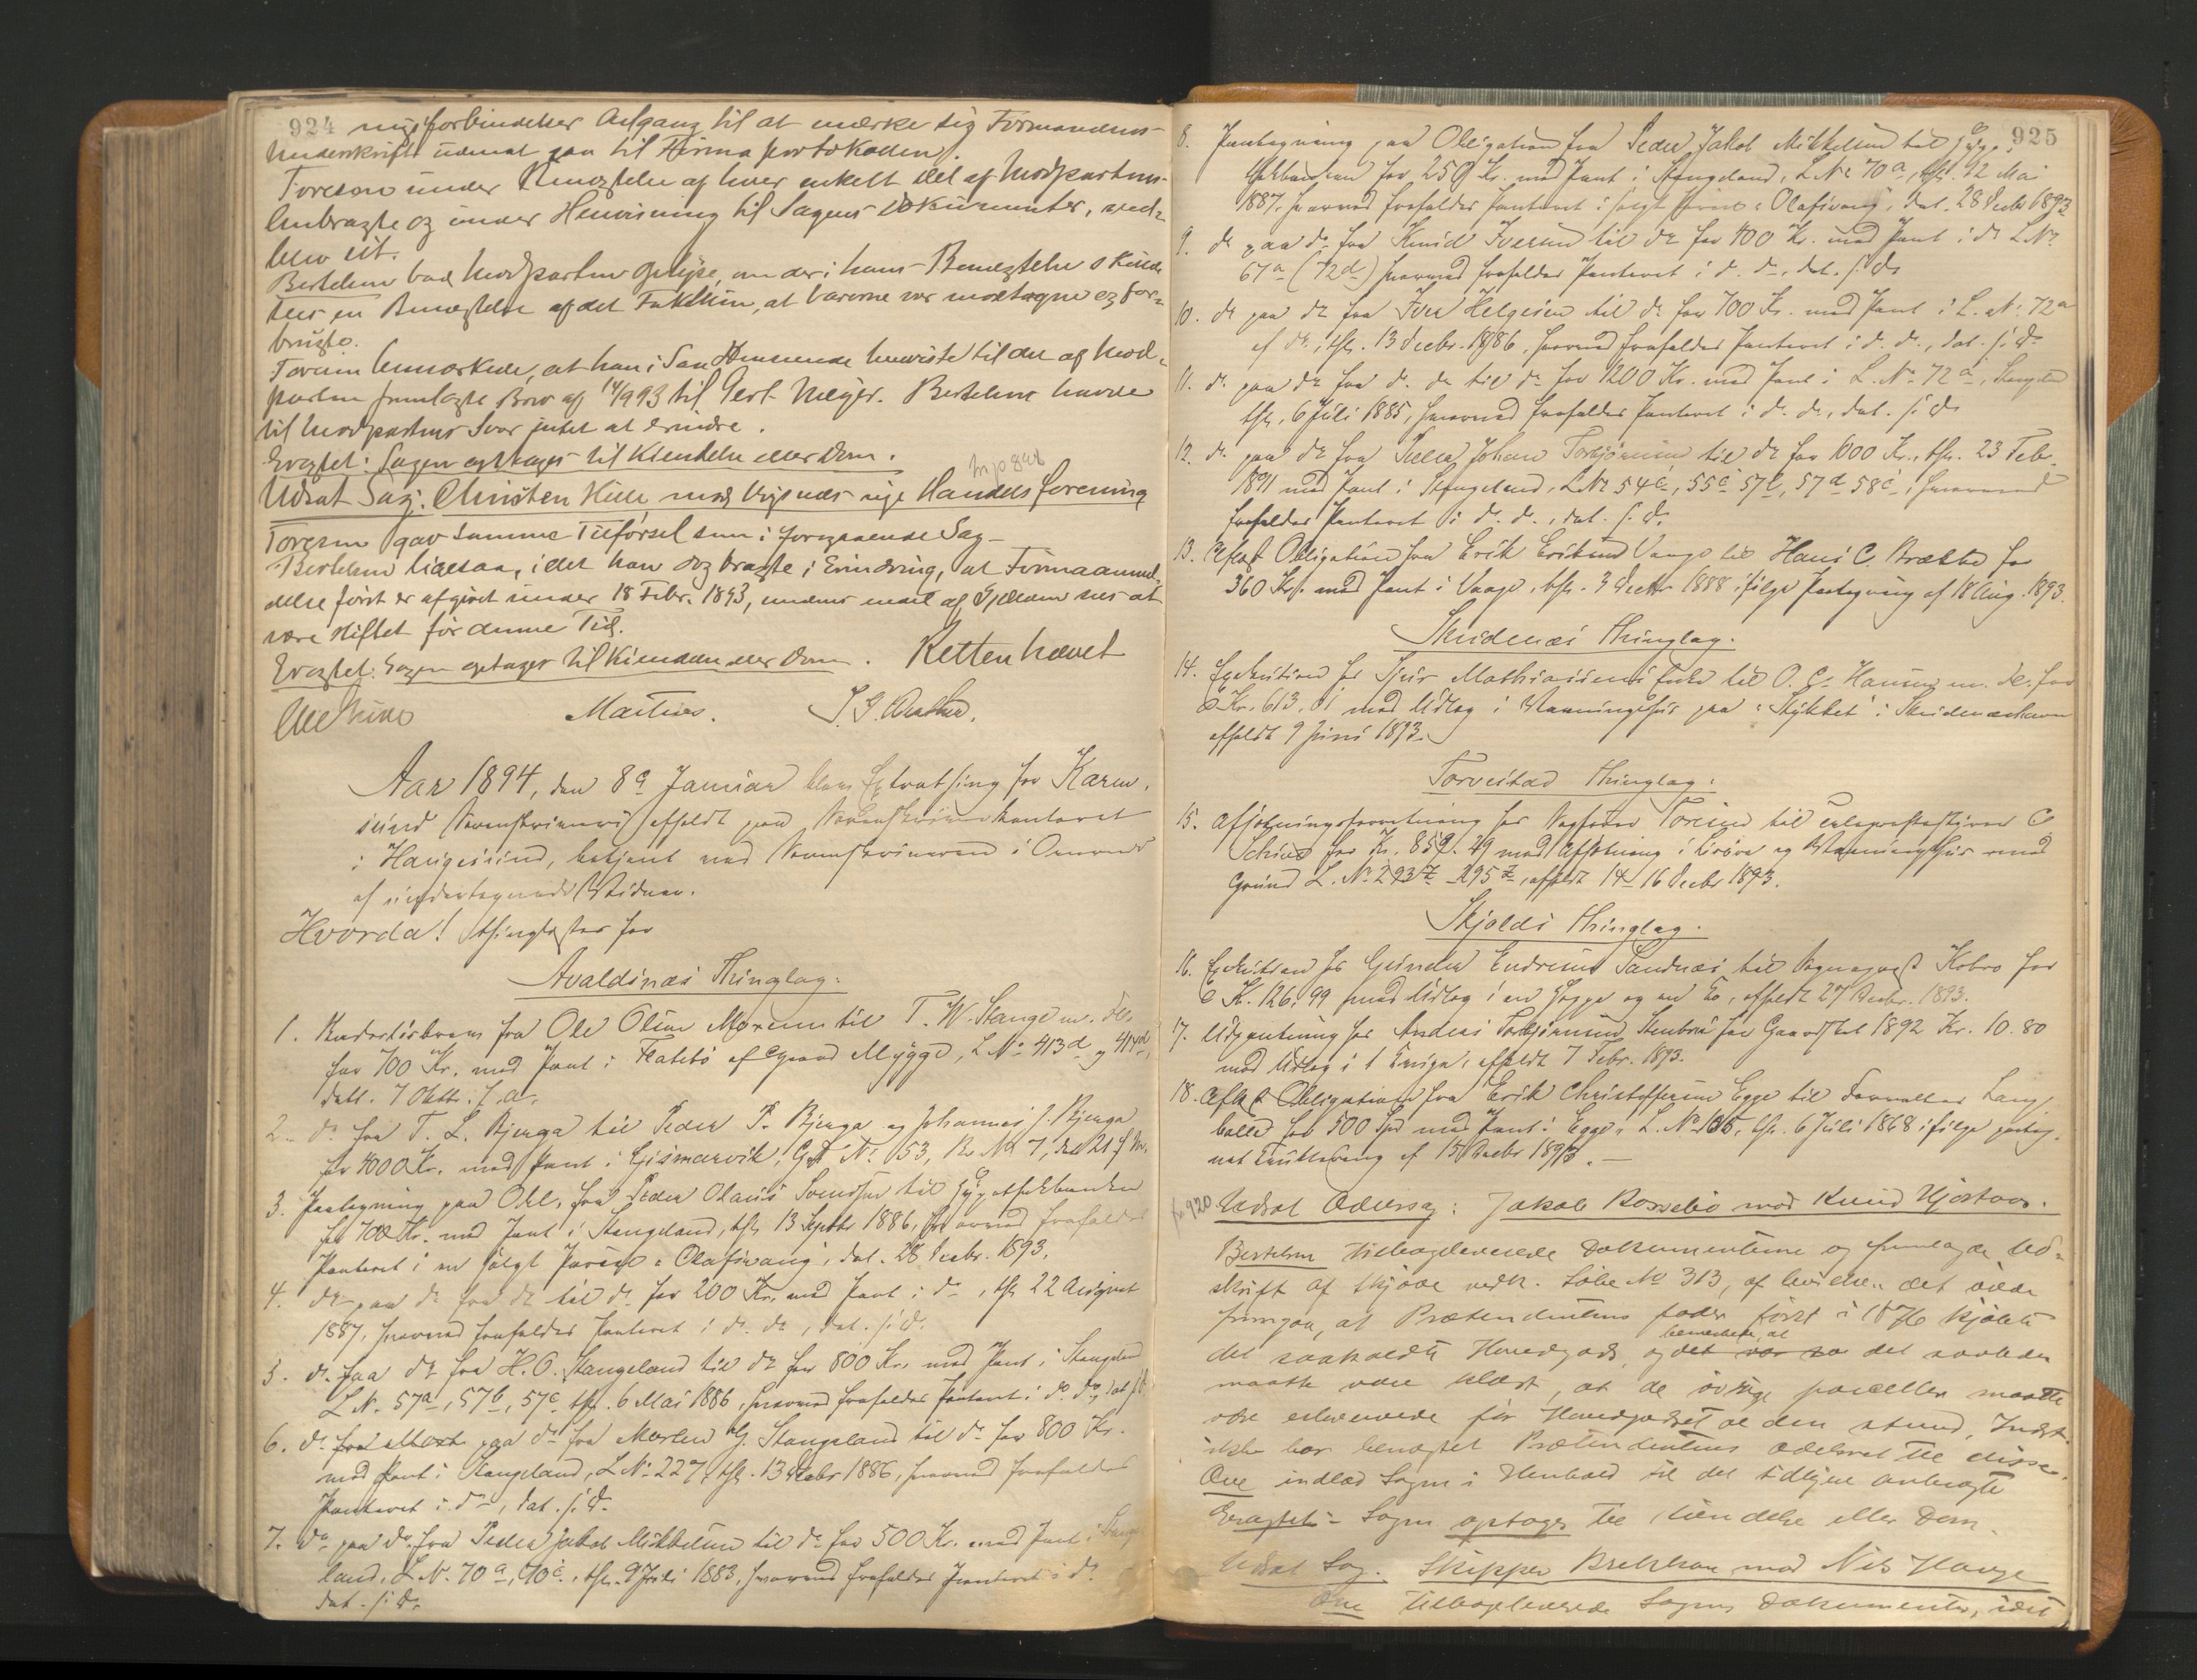 924
ningsforbindelser Adgang til at mærke sig Formandens
Underskrift udenat paa til Firma protokollen.
Toresen under Benægtelse af hver enkelt Del af Modpartens
Anbragte og under Henvisning til Sagens Dokumenter,
blev sit.
Bertelsen bad Modparten oplyse, om der i hans Benægtelse skulde
sees en Benægtelse af det Faktum, at Varerne var modtagne og for-
brugte.
Toresen bemærkede, at han i Saa Henseende henviste til det af Mod-
parten fremlagte Brev af 14/9 93 til Gert Meyer. Bertelsen havde
til Modpartens Svar intet at erindre.
Eragtet: Sagen optages til Kjendelse eller Dom.
Udsat Sag: Christen Hille mod Vigsnæs nye Handelsforening
Toresen gav samme Tilførsel som i foregaaende Sag
Bertelsen ligesaa, idet han dog bragte i Erindring, at Firmaanmel-
delse først er afgivet under 18 Febr. 1893, medens en del af Gjælden sees at
være stiftet før denne Tid.
Eragtet: Sagen optages til Kjendelse eller Dom. Retten hævet
Aar 1894, den 8de Januar blev Extrathing for Karm-
sunds Sorenskriveri afholdt paa Sorenskriverkontoret
i Haugesund, betjent ved Sorenskriveren i Overvær
af undertegnede Vidner.
Hvorda! thinglæstes for
Avaldsnæs Thinglag:
1. fra Ole Olsen til T. W. Stange m. fl.
for 700 Kr. med Pant i af Gaard Mygge, L. No 413d og 414d,
dat. 7 Oktbr. f. a.
2. do fra T. L. Bjerga til Peder P. Bjerga og Johannes J. Bjerga
for 4000 Kr. med Pant i Gismarvik, G. No 53, Br. No 7, dat 21 f. M.
3. Paategning paa Obl. fra Peder Olaus Svendsen til Hypothekbanken
for 700 Kr. med Pant i Stangeland, thl. 13 Septbr 1886, hvorved frafaldes
Panteret i en solgt Parcel "Olafsvang", dat. 28 Decbr. 1893.
4. do paa do fra do til do for 200 Kr. med Pant i do, thl. 22 August
1887, hvorved frafaldes Panteret i do do, dat. s. D.
5. do paa do fra H. O. Stangeland til do for 800 Kr. med Pant i Stangeland
L. No 57a, 57b, 57c, thl. 6 Mai 1886, hvorved frafaldes Panteret i do do, dat s. D.
6. do paa do fra Morten G. Stangeland til do for 800 Kr.
med Pant i Stangeland, L. No 227, thl. 13 1886, hvorved frafaldes
Panteret i do, dat. s. D.
7. do paa do fra Peder Jakob Mikkelsen til do for 500 Kr. med Pant i Stange
land, L. No 70a, 70c, thl. 9 Juli 1883, hvorved frafaldes Panteret i do
dat. s. D.
925
8. Paategning paa Obligation fra Peder Jakob Mikkelsen til Hypo-
thekbanken for 250 Kr. med Pant i Stangeland, L. No 70a, thl. 12 Mai
1887, hvorved frafaldes Panteret i solgt Parcel "Olafsvang", dat. 28 Decbr 1893
9. do paa do fra Knud Iversen til do for 400 Kr. med Pant i do L. No
67a (72d) hvorved frafaldes Panteret i d. do, dat. s. D.
10. do paa do fra Iver Helgesen til do for 700 Kr. med Pant i L. No 72a
af do, thl. 13 Decbr. 1886, hvorved frafaldes Panteret i d. do, dat. s. D.
11. do paa do fra d. do til do for 1200 Kr. med Pant i L. No 72a, Stangeland
thl. 6 Juli 1885, hvorved frafaldes Panteret i d. do, dat. s. D.
12. do paa do fra Johan Torbjørnsen til do for 600 Kr., thl. 23 Febr.
1891 med Pant i Stangeland, L. No 54c, 55c 57b, 57d 58c, hvorved
frafaldes Panteret i d. do, dat. s. D.
13. Aflæst Obligation fra Erik Eriksen Vaage til Hans C. Brække for
360 Kr. med Pant i Vaage, thl. 3 Decbr 1888 ifølge Paategning af 18 Aug. 1893.
Skudenæs Thinglag.
14. Exekution hos Sjur Mathiassens Enke til O. C. Hansen m. fl. for
Kr. 613.01 med Udlæg i Vaaningshus paa "Stykket" i Skudeneshavn
afholdt 9 Juni 1893.
Torvestad Thinglag.
15. Afsætningsforretning hos Sagfører Toresen til C
for Kr. 859.49 med Afsætning i og Vaaningshus med
Grund L. No 293z 295z, afholdt 14-16 Decbr 1893.
Skjolds Thinglag.
16. Exekution hos Gunder Endresen Sandnæs til Kobro for
Kr. 126.99 med Udlæg i en Hoppe og en Ko, afholdt 27 Decbr. 1893.
17. Udpantning hos Anders Torbjørnsen Stenbru for 1892 Kr. 10.80
med Udlæg i 1 Kvige, afholdt 7 Febr. 1893.
18. Aflæst Obligation fra Erik Christoffersen Egge til Lang
balle for 500 Spd med Pant i Egge, L. No 105, thl. 6 Juli 1868 ifølge
net Kvittering af 15 Decbr 1893.
fr 920 Udsat Odelssag: Jakob Rossebø mod Knud Hjortaas.
Bertelsen tilbageleverede Dokumenterne og fremlagde Ud-
skrift af Skjøde vedk. Løbe No 313, af hvilken det vilde
fremgaa, at Prætendentens Fader først i 1876 kjøbte
det saakaldte Hovedgods, og det var sa bemærkede, at det saaledes
maatte være klart, at de øvrige Parceller maatte
være erhvervede før Hovedgodset al den stund, Indst.
ikke har benægtet Prætendentens Odelsret til disse.
Ove indlod Sagen i Henhold til det tidligere anbragte
Eragtet: Sagen optages til Kjendelse eller Dom.
Udsat Sag. Skipper Brekhan mod Nils Hauge
Ove tilbageleverede Sagens Dokumenter, idet